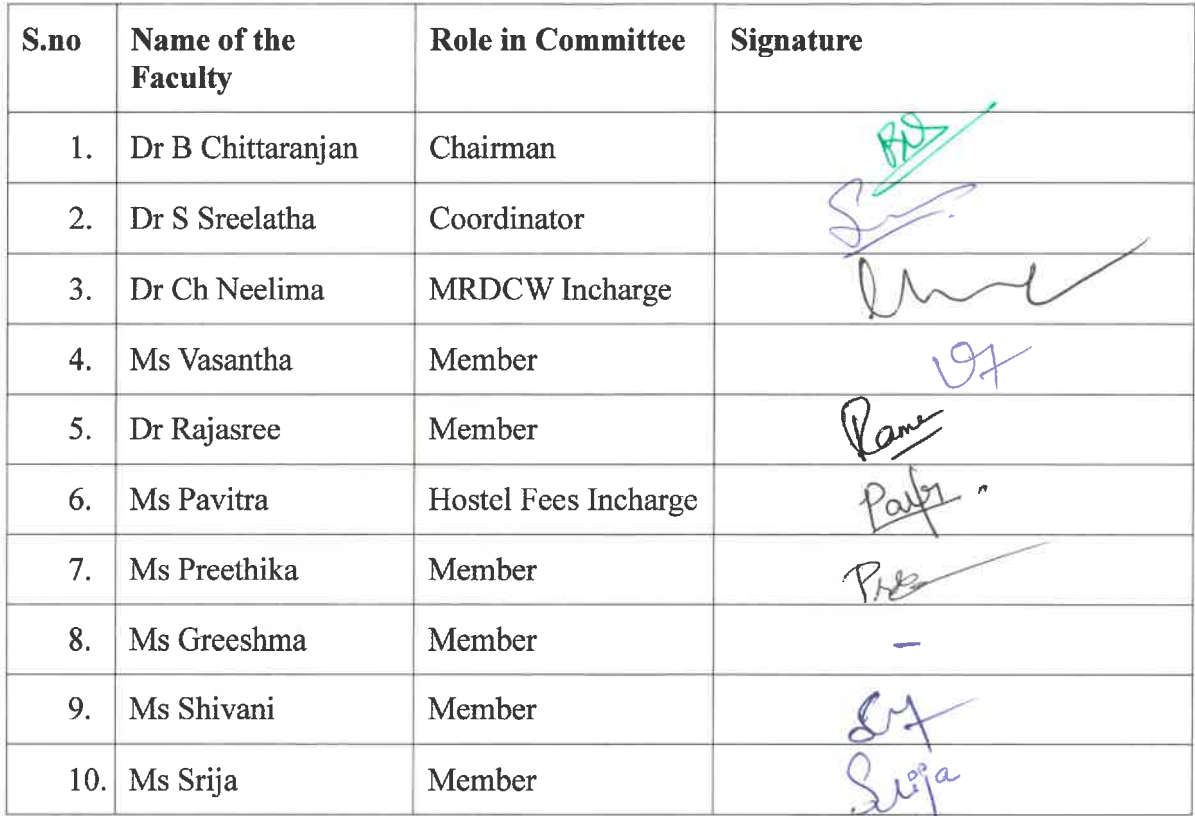 S.no Name of the Faculty Role in Committee Signature
1. Dr B Chittaranjan Chairman
2. Dr S Sreelatha Coordinator
3. Dr Ch Neelima MRDCW Incharge
4. Ms Vasantha Member
5. Dr Rajasree Member
6. Ms Pavitra Hostel Fees Incharge
7. Ms Preethika Member
8. Ms Greeshma Member -
9. Ms Shivani Member
10. Ms Srija Member Srija